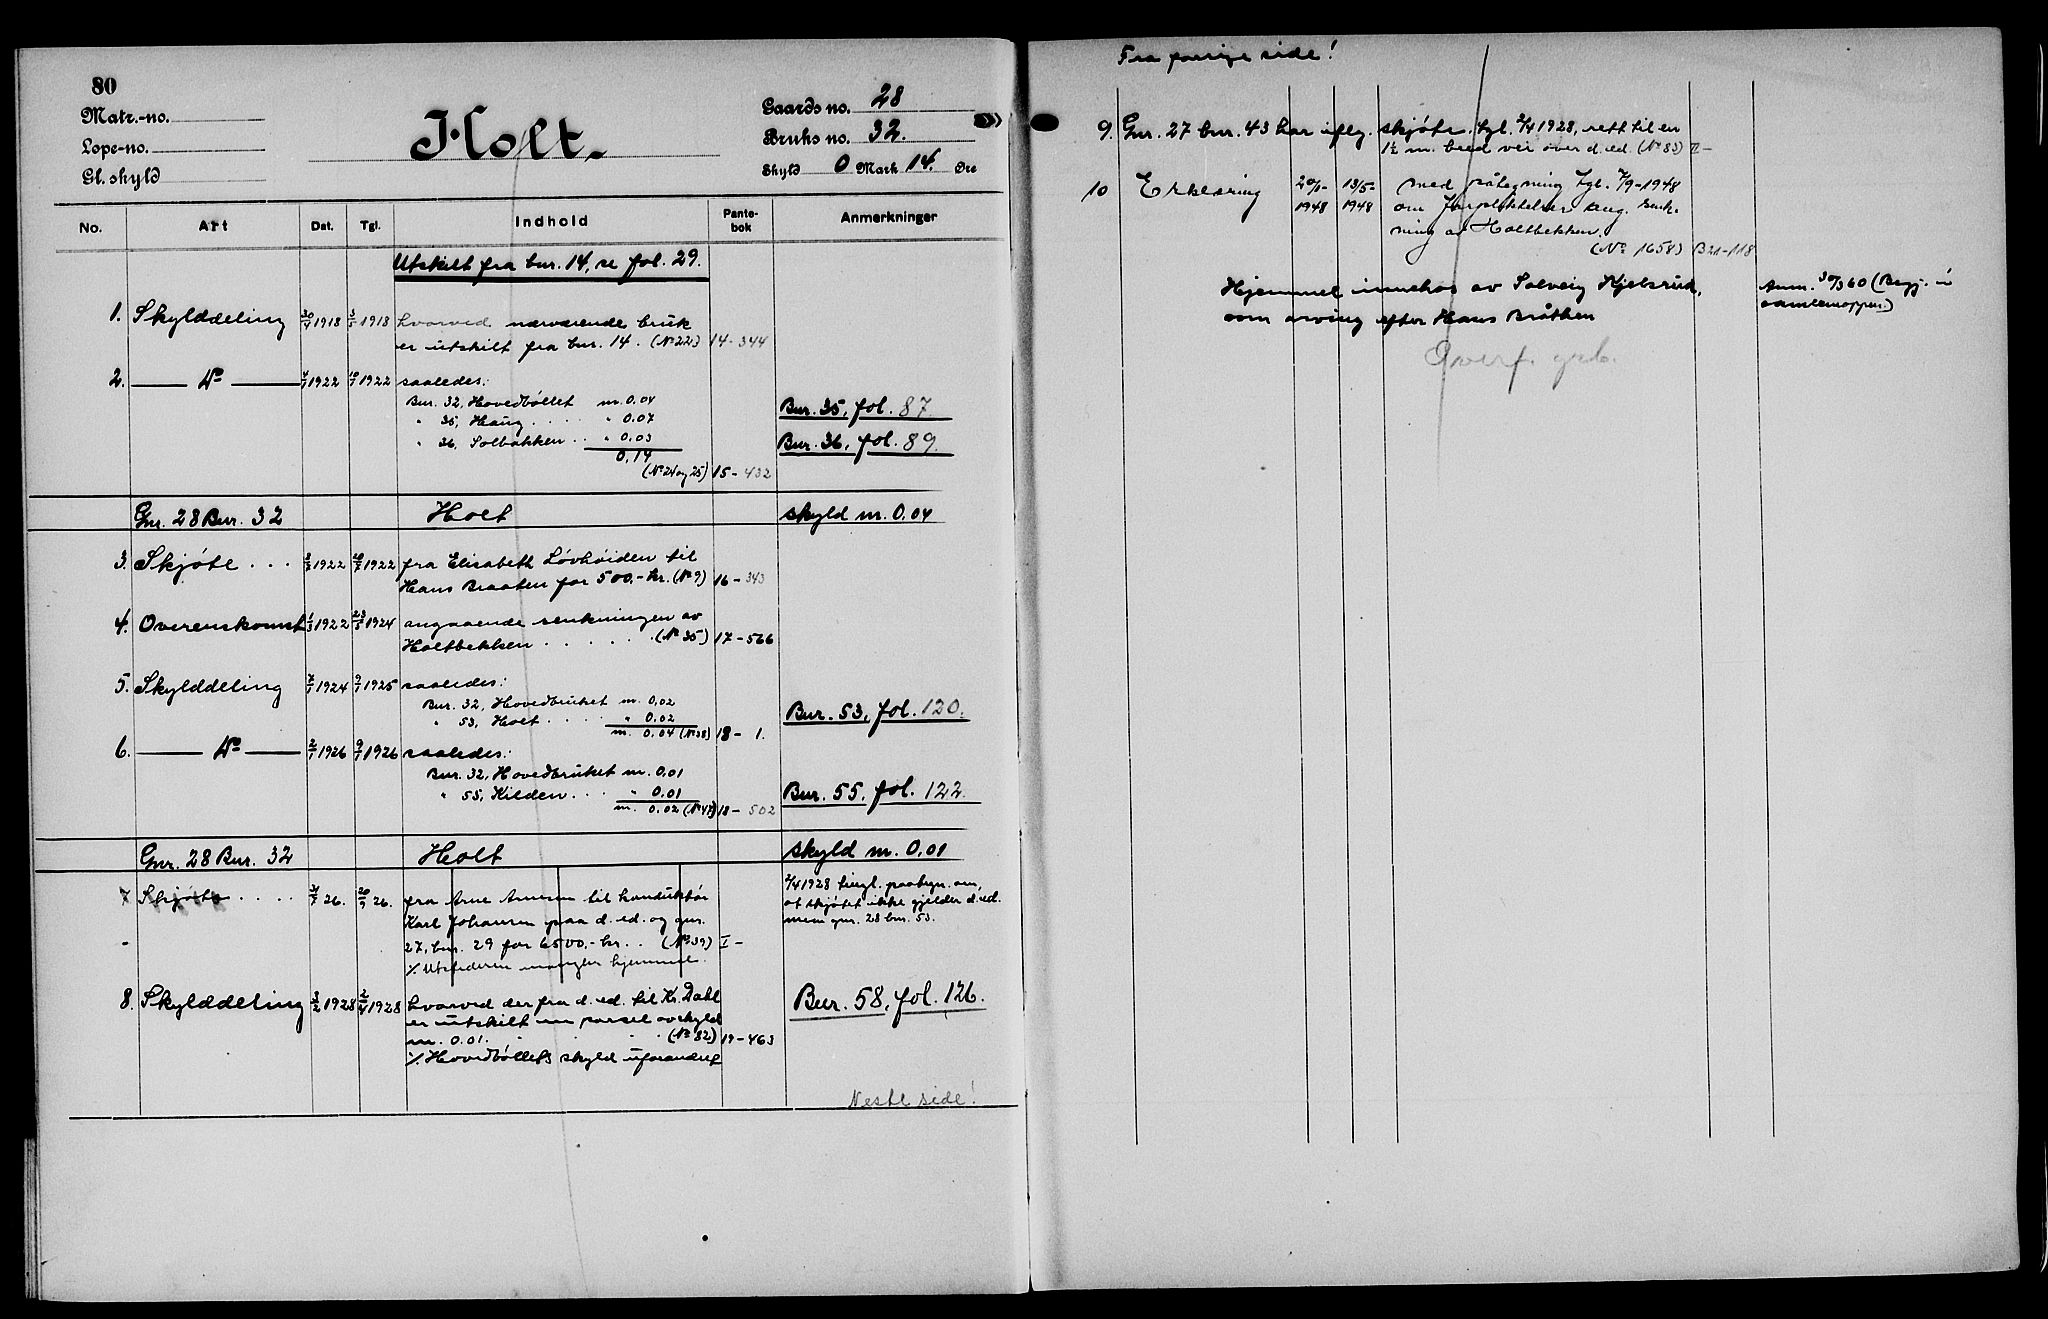 80
Matr.-no.
Løpe-no.
Gl. skyld
Holt.
Gaards no. 28
Bruks no. 32.
Skyld 0 Mark 14. Øre
No. Art Dat. Tgl. Indhold Pante-bok Anmerkninger
Utskilt fra bnr. 14, se fol. 29.
1. Skylddeling 30/4 1918 3/5 1918 hvorved nærværende bruk
er utskilt fra bnr. 14. (No 22) 14-344
2. — Do — 1922 1922 saaledes:
Bnr. 32, Hovedbøllet m. 0.04
" 35, Haug . . . . " 0.07 Bnr. 35, fol. 87.
" 36, Solbakken . . " 0.03 Bnr. 36, fol. 89.
0.14
(No 24 og 25) 15-432
Gnr. 28 Bnr. 32 Holt skyld m. 0.04
3. Skjøte . . . 1922 1922 fra Elisabeth Løvhøiden til
Hans Braaten for 500,- kr. (No 9) 16-343
4. Overenskomst 1922 23/5 1924 angaaende senkningen av
Holtbekken . . . . . . (No 35) 17-566
5. Skylddeling 1924 9/1 1925 saaledes:
Bnr. 32, Hovedbruket m. 0.02
" 53, Holt . . . . " 0.02 Bnr. 53, fol. 120.
m. 0.04 (No 38) 18-1.
6. — Do — 2/1 1926 9/1 1926 saaledes:
Bnr. 32, Hovedbruket m. 0.01
" 55, Kilden . . . " 0.01 Bnr. 55, fol. 122.
m. 0.02 (No 47) 18-502
Gnr. 28 Bnr. 32 Holt skyld m. 0.01
7 Skjøte . . . . 26. 26. fra Arne Arnesen til konduktør
Karl Johansen paa d. ed. og gnr.
27, bnr. 29 for 6500,- kr. . (No 39) I-
%. Utstederen mangler hjemmel.
2/4 1928 tingl. paategn. om,
at skjøtet ikke gjelder d. ed.
men gnr. 28 bnr. 53.
8. Skylddeling 3/2 1928 2/4 1928 hvorved der fra d. ed. til Kr. Dahl
er utskilt en parsel av skyld
m. 0.01. (No 82) 19-463
%. Hovedbøllets skyld uforandret
Bnr. 58, fol. 126.
Neste side!
Fra forrige side!
9. Gnr. 27 bnr. 43 har iflg. skjøte, tgl. 2/4 1928, rett til en
1½ m. bred vei over d. ed. (No 83) II-
10 Erklæring 20/1-1948 13/5-1948 med påtegning tgl. 7/9-1948
om forpliktelser ang. senk-
ning av Holtbekken.
(No 1658) B21-118
Hjemmel innehas av Solveig Kjelsrud,
som arving efter Hans Bråthen
Anm. 30/3 60 (Begj. i
samlemappen)
Overf. grb.